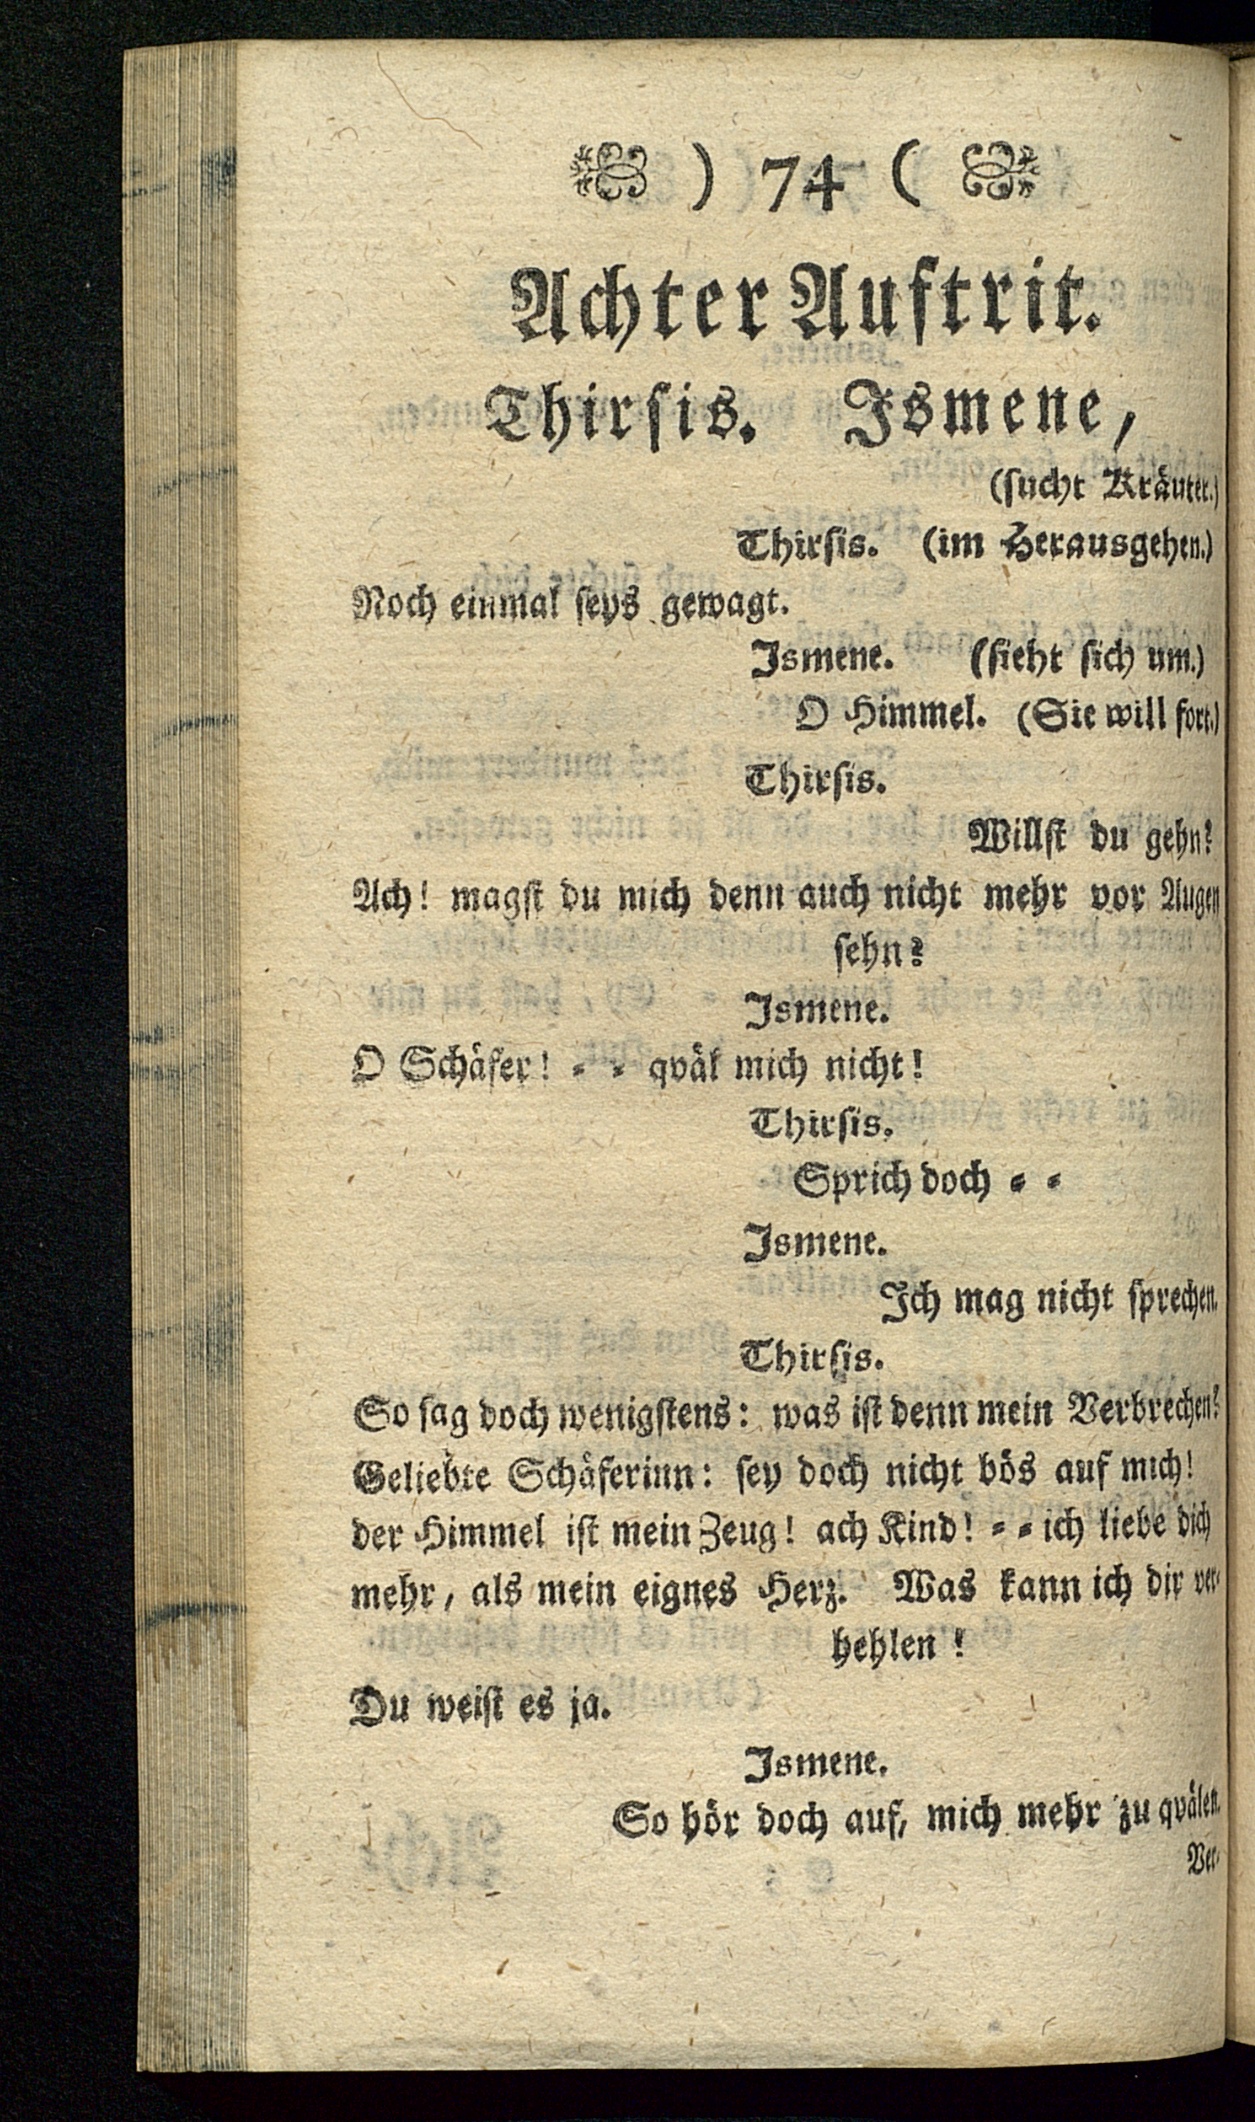 ) 74 (
Achter Auftrit.
Thirsis. Ismene,
(sucht Kräuter.)
Thirsis. (im Herausgehen.)
Noch einmal seys gewagt.
Ismene. (sieht sich um.)
O Himmel. (Sie will fort.)
Thirsis.
Willst du gehn?
Ach! magst du mich denn auch nicht mehr vor Augen
sehn?
Ismene.
O Schäfer! - - qväl mich nicht!
Thirsis.
Sprich doch - -
Ismene.
Ich mag nicht sprechen.
Thirsis.
So sag doch wenigstens: was ist denn mein Verbrechen?
Geliebte Schäferinn: sey doch nicht bös auf mich!
der Himmel ist mein Zeug! ach Kind! - - ich liebe dich
mehr, als mein eignes Herz. Was kann ich dir ver-
hehlen!
Du weist es ja.
Ismene.
So hör doch auf, mich mehr zu qvälen.
Ver-